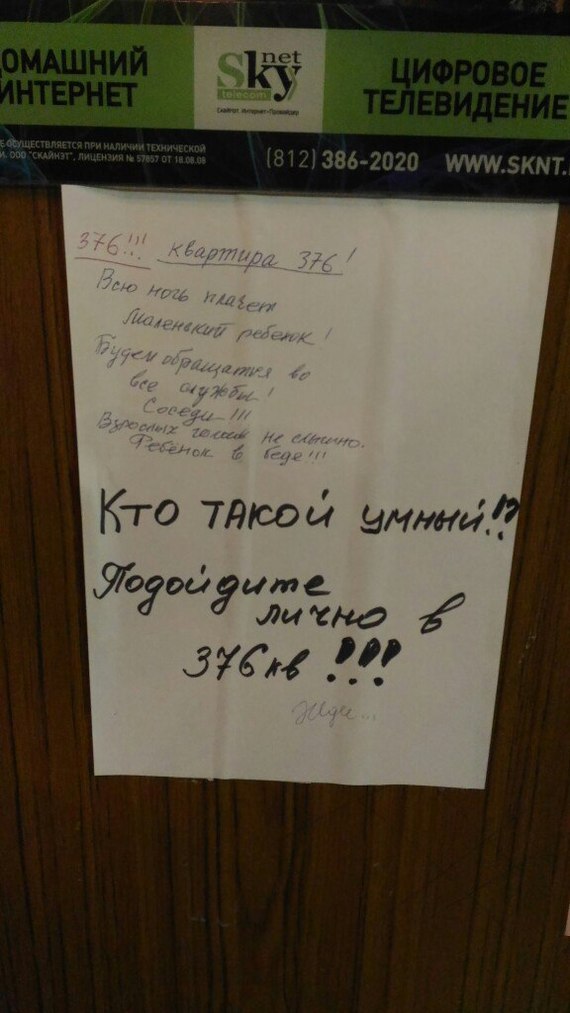 ДОМАШНИЙ
ИНТЕРНЕТ
Skynet
telecom
Скайнэт. Интернет-Провайдер
ЦИФРОВОЕ
ТЕЛЕВИДЕНИЕ
ОСУЩЕСТВЛЯЕТСЯ ПРИ НАЛИЧИИ ТЕХНИЧЕСКОЙ
И. ООО "СКАЙНЭТ", ЛИЦЕНЗИЯ № 57857 ОТ 18.08.08
(812) 386-2020 WWW.SKNT.
376!!! квартира 376!
Всю ночь плачет
маленький ребенок!
Будем обращатся во
все службы!
Соседи!!!
Взрослых не слышно.
Ребенок в беде!!!
Кто такой умный!?
Подойдите
лично в
376 кв!!!
Жди...